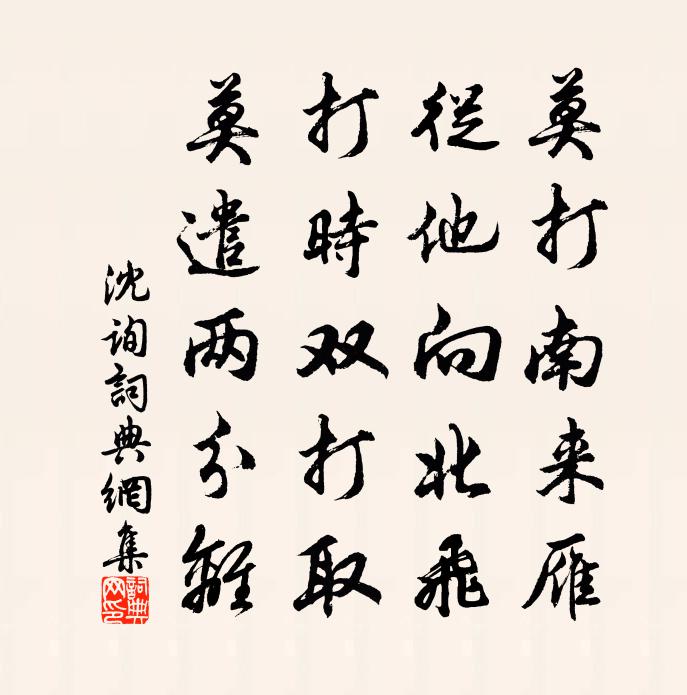 莫打南来雁
從他向北飛
打時双打取
莫遣两分離
沈詢詞典網集
詞典网印